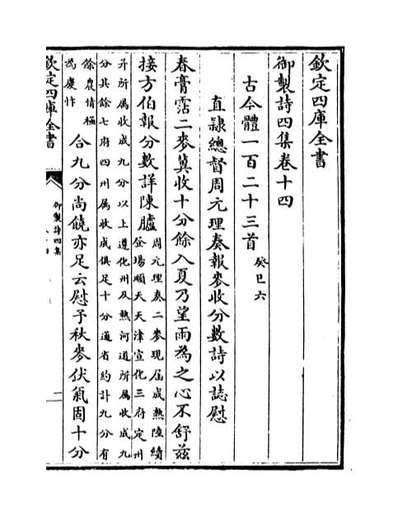 欽定四庫全書
御製詩四集卷十四
古今體一百二十三首癸巳六
直隸總督周元理奏報麥收分數詩以誌慰
春膏霑二麥冀收十分餘入夏乃望雨為之心不舒兹
接方伯報分數詳陳臚周元理奏二麥現屆成熟陸續
登場順天天津宣化三府定州
并所屬收成九分以上遵化州及熱河道所屬收成九
分其餘七府四州屬收成俱足十分通省約計九分有
餘農情極
為慶忭合九分尚饒亦足云慰予秋麥伏氣固十分
欽定四庫全書
御製詩四集
一